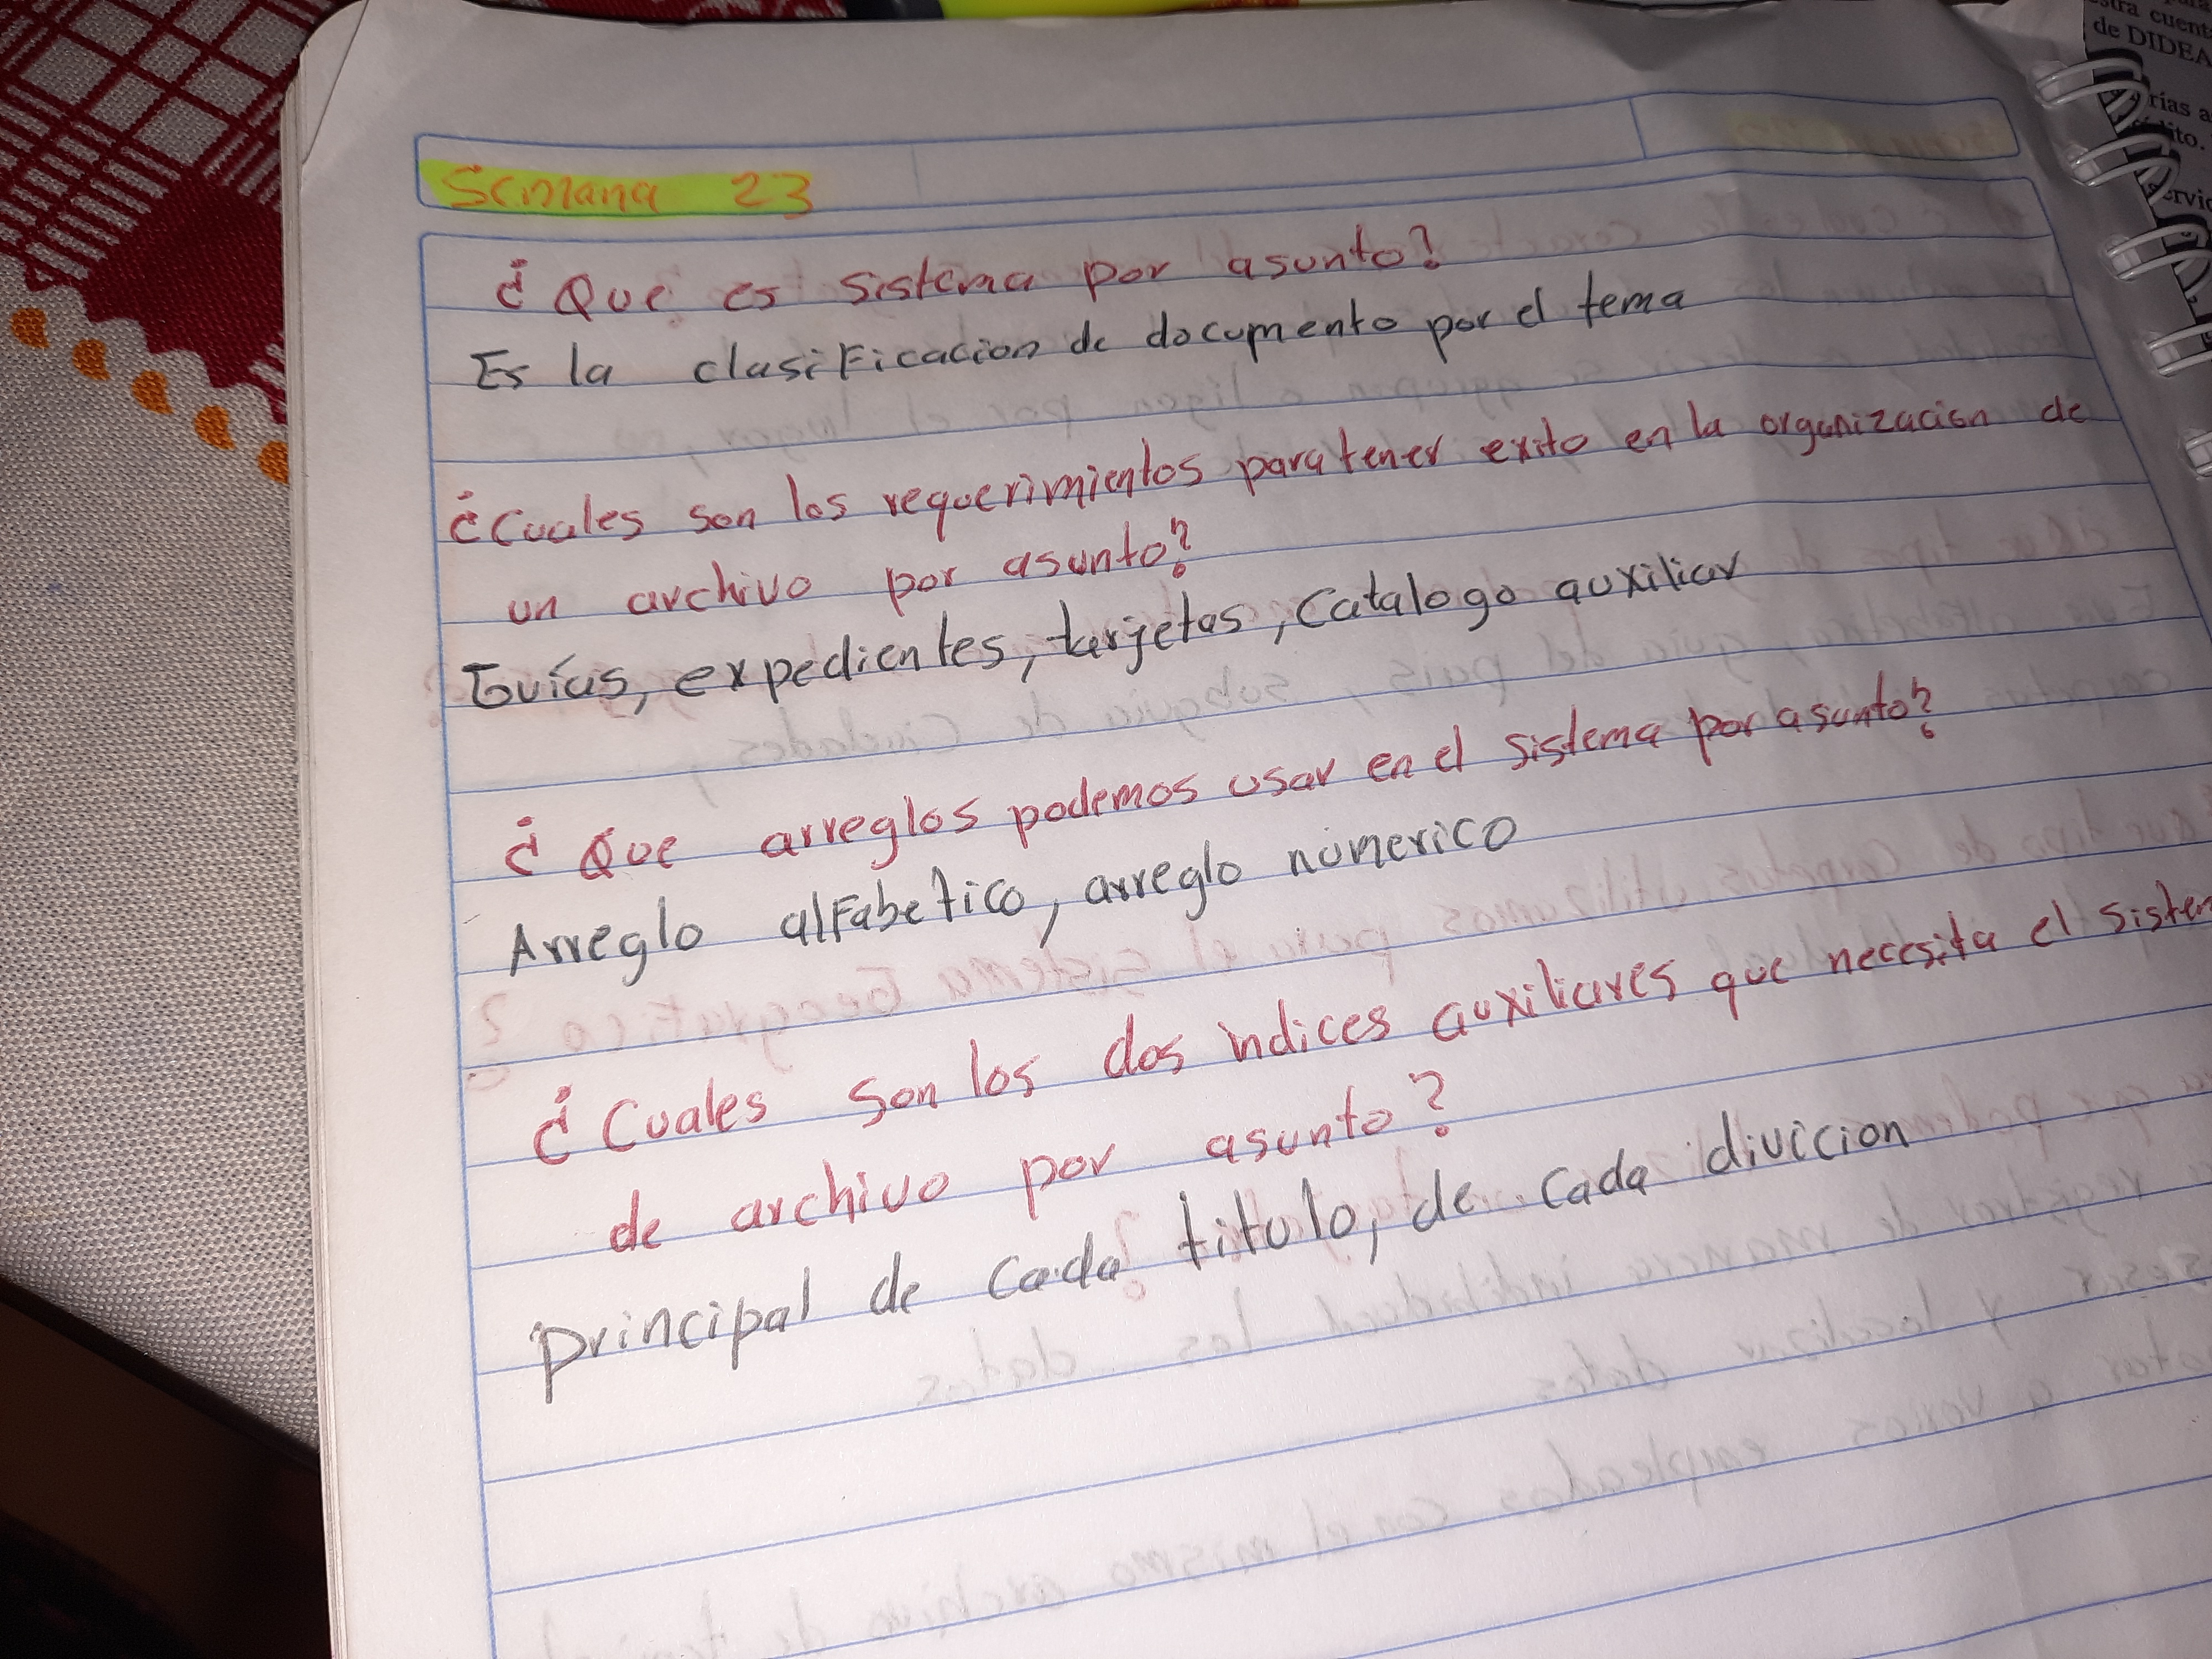 Semana 23
¿Que es sistema por asunto?
Es la clasificacion de documento por el tema
¿Cuales son los requerimientos para tener exito en la organizacion de
un archivo por asunto?
Guías, expedientes, tarjetas, catalogo auxiliar
¿Que arreglos podemos usar en el sistema por asunto?
Arreglo alfabetico, arreglo númerico
¿Cuales son los dos indices auxiliares que necesita el sistem
de archivo por asunto?
principal de cada titulo, de cada divicion
cuent
de DIDEA
rías a